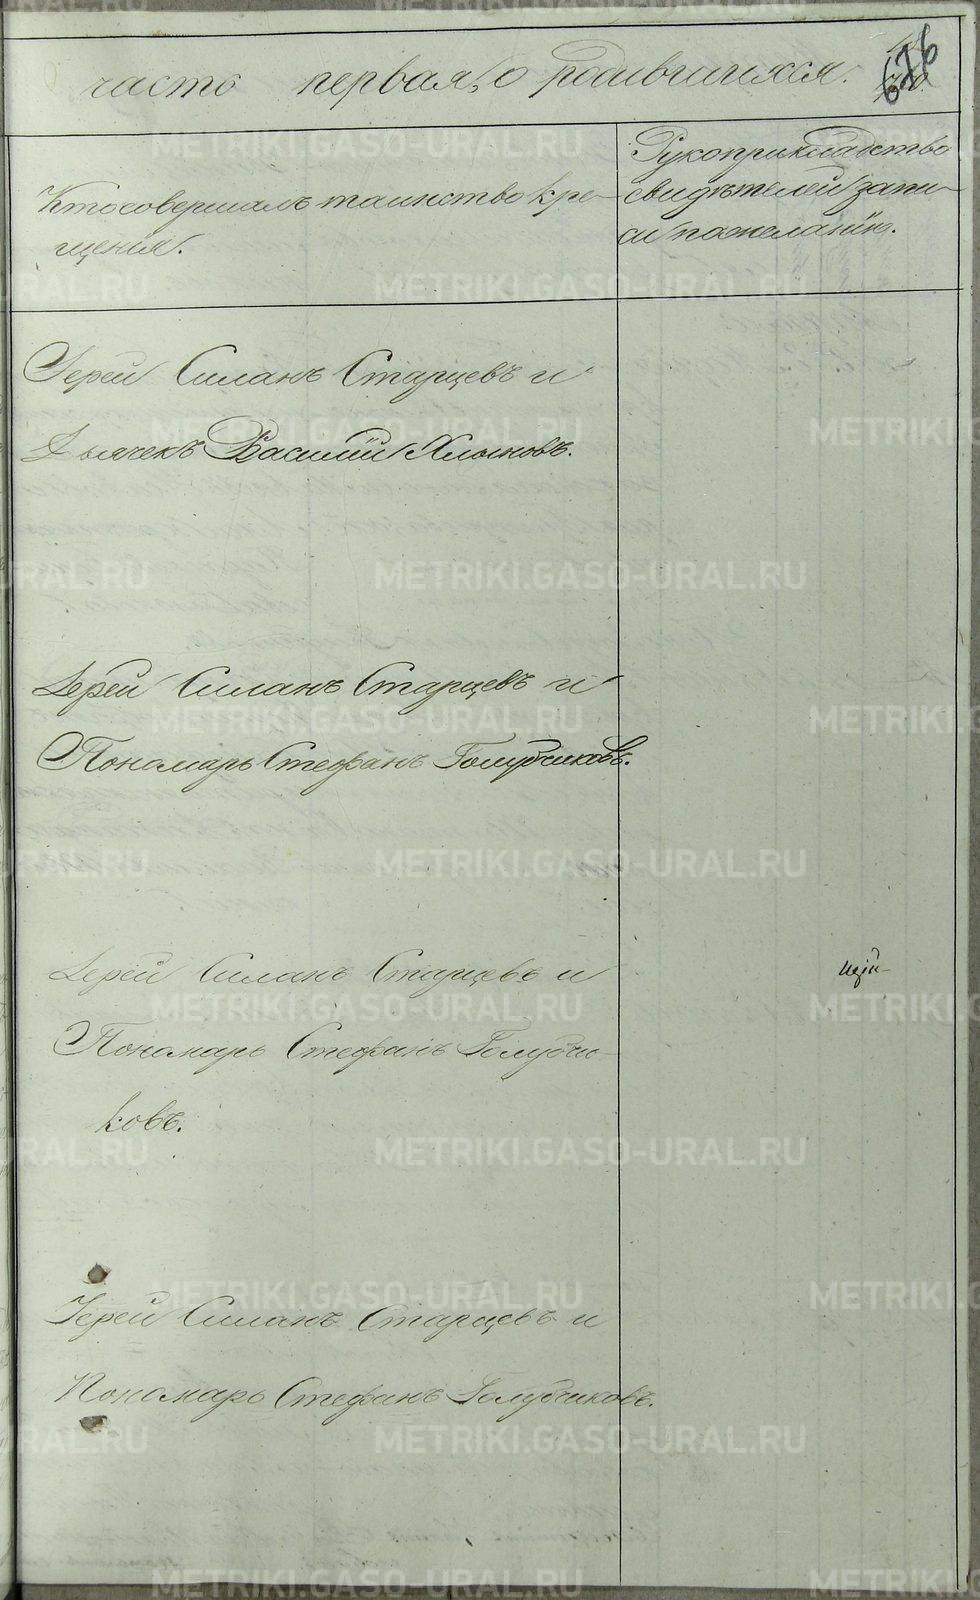 часть первая, о родившихся.
676
Кто совершалъ таинство кре-
щенія.
Рукоприкладство
свидѣтелей запи-
си по желанію.
Іерей Силанъ Старцевъ и
Дьячекъ Василій Хлыновъ.
Іерей Силанъ Старцевъ и
Пономарь Стефанъ Голубчиковъ.
Іерей Силанъ Старцевъ и
Пономарь Стефанъ Голубчи-
ковъ.
Іерей Силанъ Старцевъ и
Пономарь Стефанъ Голубчиковъ.
METRIKI.GASO-URAL.RU